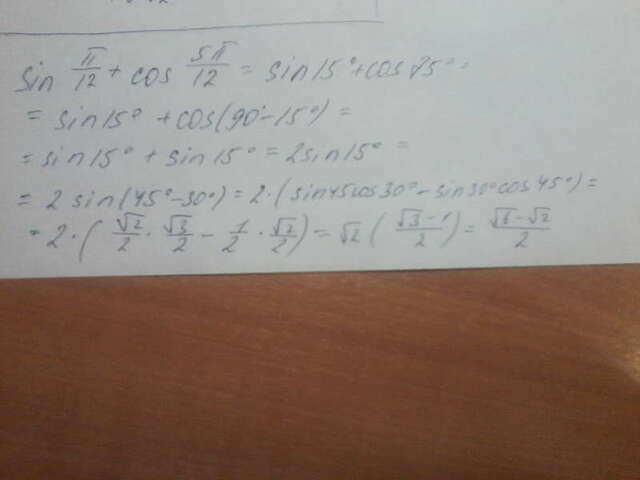 sin π/12 + cos 5π/12 = sin15° + cos75° =
= sin15° + cos(90°-15°) =
= sin15° + sin15° = 2sin15° =
= 2 sin(45°-30°) = 2·(sin45cos30° - sin30°cos45°) =
= 2·(√2/2 · √3/2 - 1/2 · √2/2) = √2 (√3-1/2) = √6-√2/2